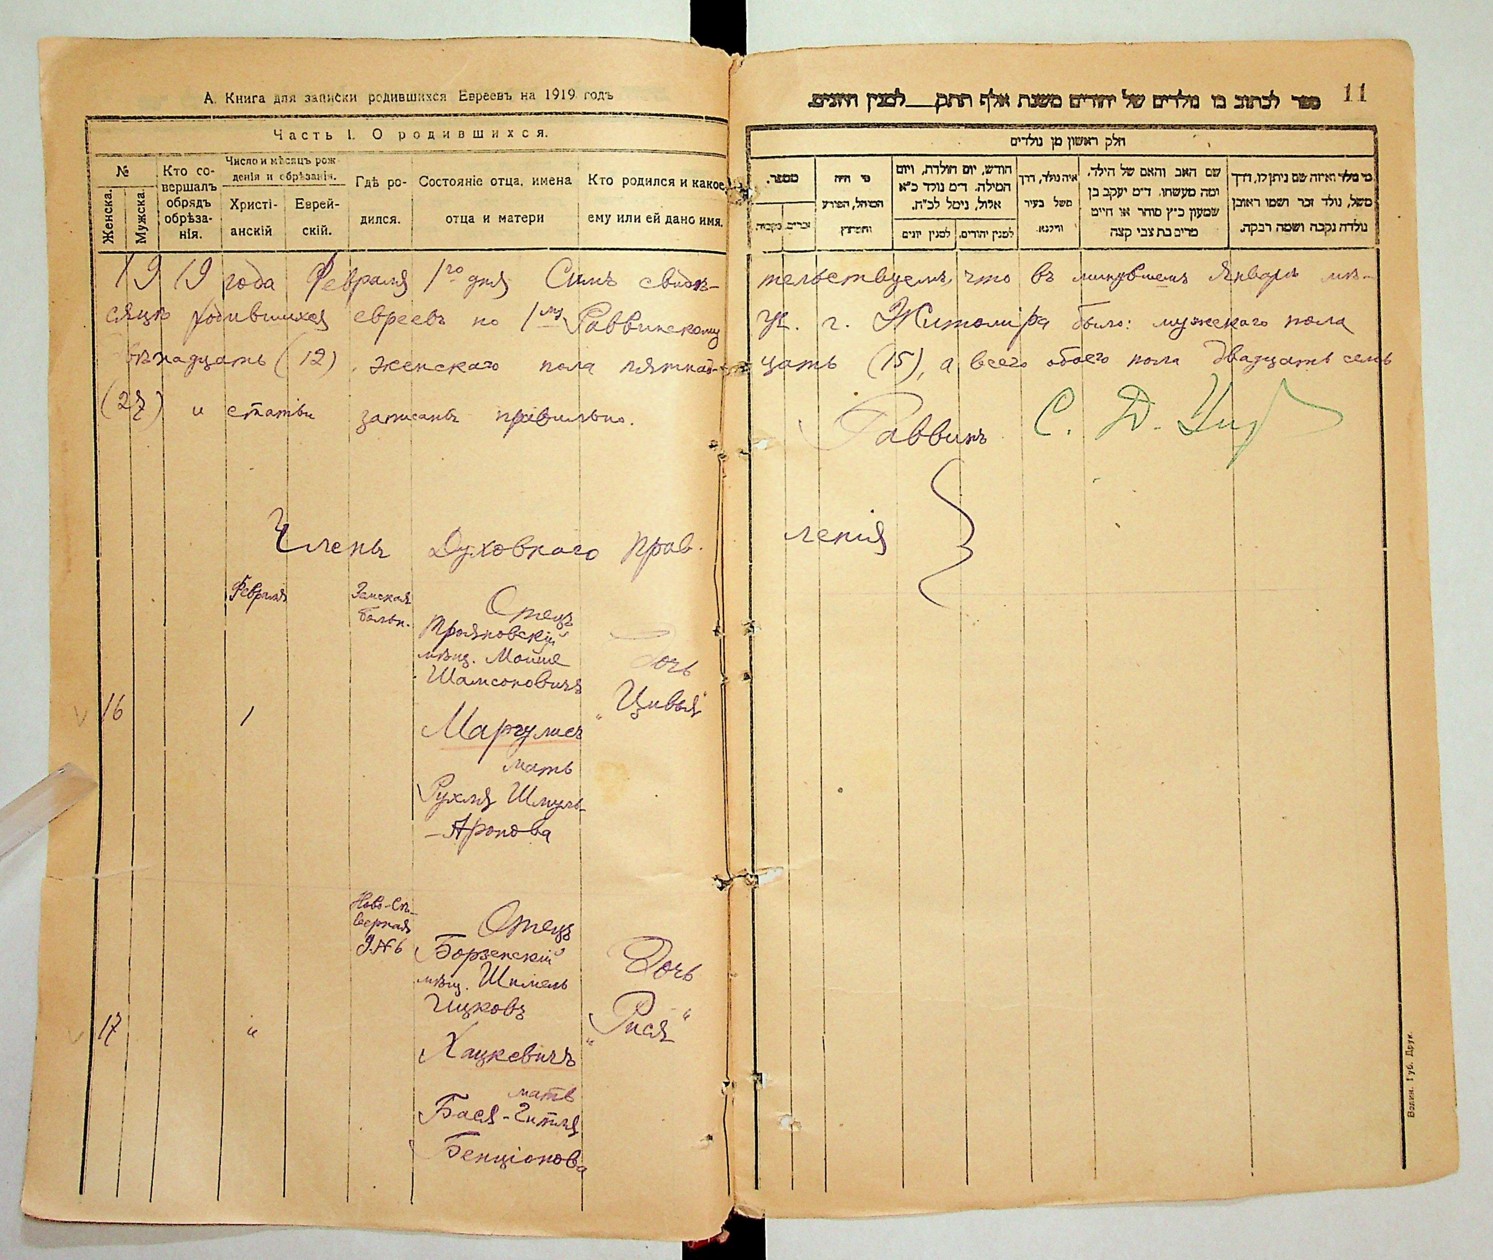 А. Книга для записки родившихся Евреевъ на 1919 годъ
Часть I. О родившихся.
№
Женска.
Мужска.
Кто со-
вершалъ
обрядъ
обрѣза-
нія.
Число и мѣсяцъ рож-
денія и обрѣзанія.
Христі-
анскій
Еврей-
скій.
Гдѣ ро-
дился.
Состояніе отца, имена
отца и матери
Кто родился и какое
ему или ей дано имя.
11
ספר לכתוב בו נולדים של יהודים משנת אלף תתק__למנין היונים.
חלק ראשון מן נולדים
מספר.
זכרים.
נקבות.
מי היה
המוהל, הפורע
והמוצץ
חודש, יום הולדת, ויום
המילה. ד״מ נולד כ״א
אלול, נימל לכ״ח.
למנין יהודים.
למנין יונים
איה נולד, דרך
משל בעיר
ווילנא.
שם האב והאם של הילד.
ומה מעשהו. ד״מ יעקב בן
שמעון כ״ץ סוחר או חיים
מרים בת צבי קצה
מי נולד ואיזה שם ניתן לו, דרך
משל, נולד זכר ושמו ראובן
נולדה נקבה ושמה רבקה.
1919 года Февраля 1го дня Симъ свидѣ- тельствуемъ, что въ минувшемъ Январѣ мѣ-
сяцѣ родившихся евреевъ по 1му Раввинскому уч. г. Житомира было: мужескаго пола
двѣнадцать (12), женскаго пола пятнад- цать (15), а всего обоего пола двадцать семь
(27) и статьи записаны правильно.
Раввинъ С. Д.
Члены Духовнаго Прав- ленія
Февраля
Земская
больн.
Отецъ
Трояновскій
мѣщ. Мойше
Шамсоновичъ
Маргулисъ
мать
Рухля Шмуль-
-Аронова
Дочь
„Цивья“
16
1
Ново-Сѣ-
верная
Отецъ
Борзенскій
мѣщ. Шмель
Ицковъ
Хацкевичъ
мать
Бася-Гитля
Бенціонова
Дочь
„Рися“
17
„
Волин. Губ. Друк.